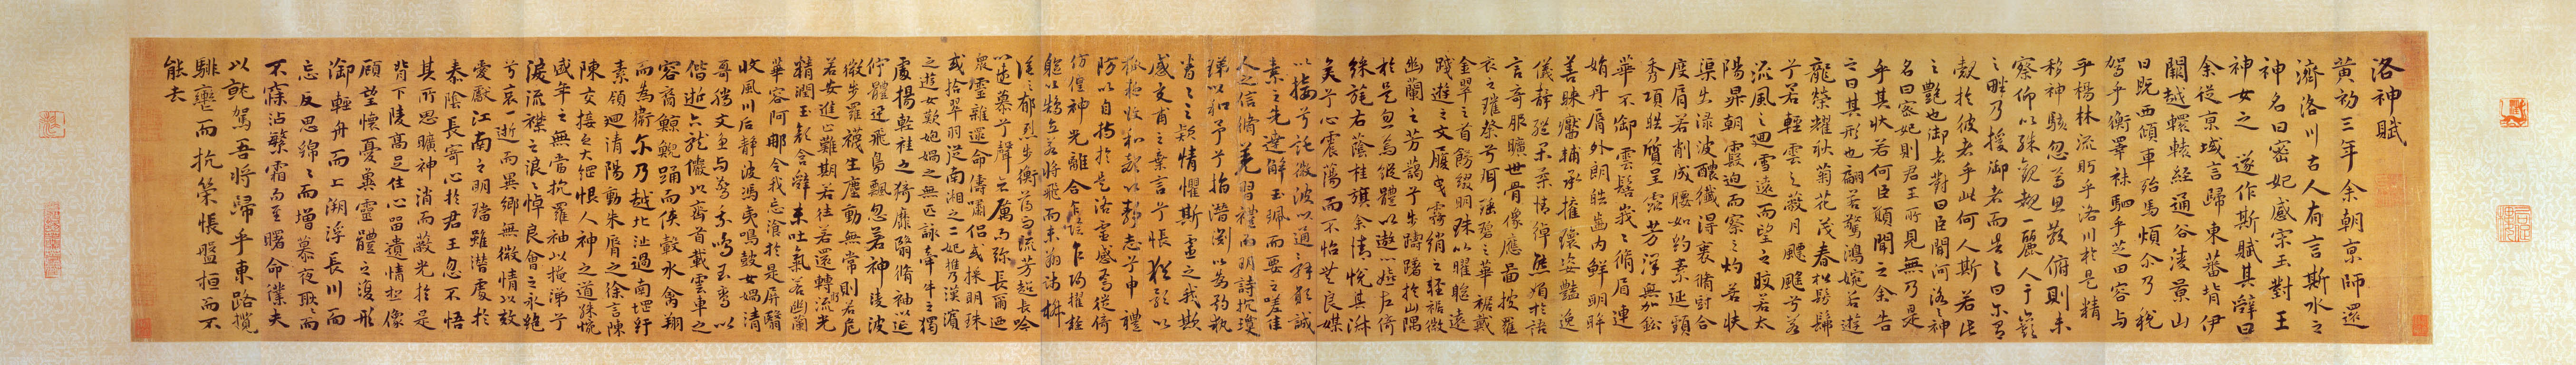 洛神賦
黄初三年余朝京師還
濟洛川古人有言斯水之
神名曰宓妃感宋玉對王
神女之遂作斯賦其辭曰
余從京域言歸東藩背伊
闕越轘轅經通谷陵景山
日既西傾車殆馬煩尒乃税
駕乎蘅皋秣駟乎芝田容与
乎楊林流眄乎洛川於是精
移神駭忽焉思散俯則未
察仰以殊觀覩一麗人于巖
之畔乃援御者而告之曰尒有
覿於彼者乎此何人斯若此
之艷也御者對曰臣聞河洛之神
名曰宓妃則君王所見無乃是
乎其状若何臣願聞之余告
之曰其形也翩若驚鴻婉若遊
龍榮耀秋菊花茂春松髣髴
兮若輕雲之蔽月飄飖兮若
流風之迴雪遠而望之皎若太
陽昇朝霞迫而察之灼若芙
渠出淥波醲纖得衷脩短合
度肩若削成腰如約素延頸
秀項皓質呈露芳澤無加鉛
華不御雲髻峩々脩眉連
娟丹脣外朗皓齒内鮮明眸
善睞靨輔承權瓌姿艷逸
儀静體閑柔情綽態媚於語
言奇服曠世骨像應圖披羅
衣之璀粲兮珥瑶碧之華裾戴
金翠之首飾綴明珠以曜軀遠
踐遊之文履曳霧綃之輕裾微
幽蘭之芳藹兮步踟躕於山隅
於是忽焉縱體以遨以嬉左倚
綵旄右蔭桂旗余情悦其淑
美兮心震蕩而不怡無良媒
以接兮託微波以通辞願誠
素之先達解玉珮而要之嗟佳
人之信脩羌習禮而明詩抗瓊
珶以和予兮指潛渊以為期執
眷々之款情懼斯靈之我欺
感交甫之棄言兮悵猶豫以
狐疑收和顔以静志兮申禮
防以自持於是洛靈感焉徙倚
彷徨神光離合乍陰乍陽擢輕
軀以鶴立若將飛而未翔踐椒
塗之郁烈步蘅薄而流芳超長吟
以遠慕兮聲哀厲而弥長爾迺
衆靈雜遝命儔嘯侣或採明珠
或拾翠羽從南湘之二妃攜漢濱
之遊女歎匏媧之無匹詠牽牛之獨
處揚輕袿之猗靡翳脩袖以延
佇體迅飛鳧飄忽若神陵波
微步羅襪生塵動無常則若危
若安進止難期若往若還轉流光
精潤玉顔含辭未吐氣若幽蘭
華容阿那令我忘飡於是屏翳
收風川后静波馮夷鳴鼓女媧清
哥騰文魚与警乘鳴玉鸞以
偕逝六龍儼以齊首載雲車之
容裔鯨鯢踊而俠轂水禽翔
而為衛尔乃越北沚過南岡紆
素領迴清陽動朱脣之徐言陳
陳交接之大綱恨人神之道殊怨
盛年之無當抗羅袖以掩涕兮
淚流襟之浪々悼良會之永絶
兮哀一逝而異鄉無微情以效
愛獻江南之明璫雖潛處於
泰陰長寄心於君王忽不悟
其所思曠神消而蔽光於是
背下陵高足往心留遺情想像
顧望懷憂冀靈體之復形
御輕舟而上溯浮長川而
忘反思綿々而增慕夜耿々而
不寐沾繁霜而至曙命僕夫
以就駕吾將歸乎東路攬
騑轡而抗策悵盤桓而不
能去